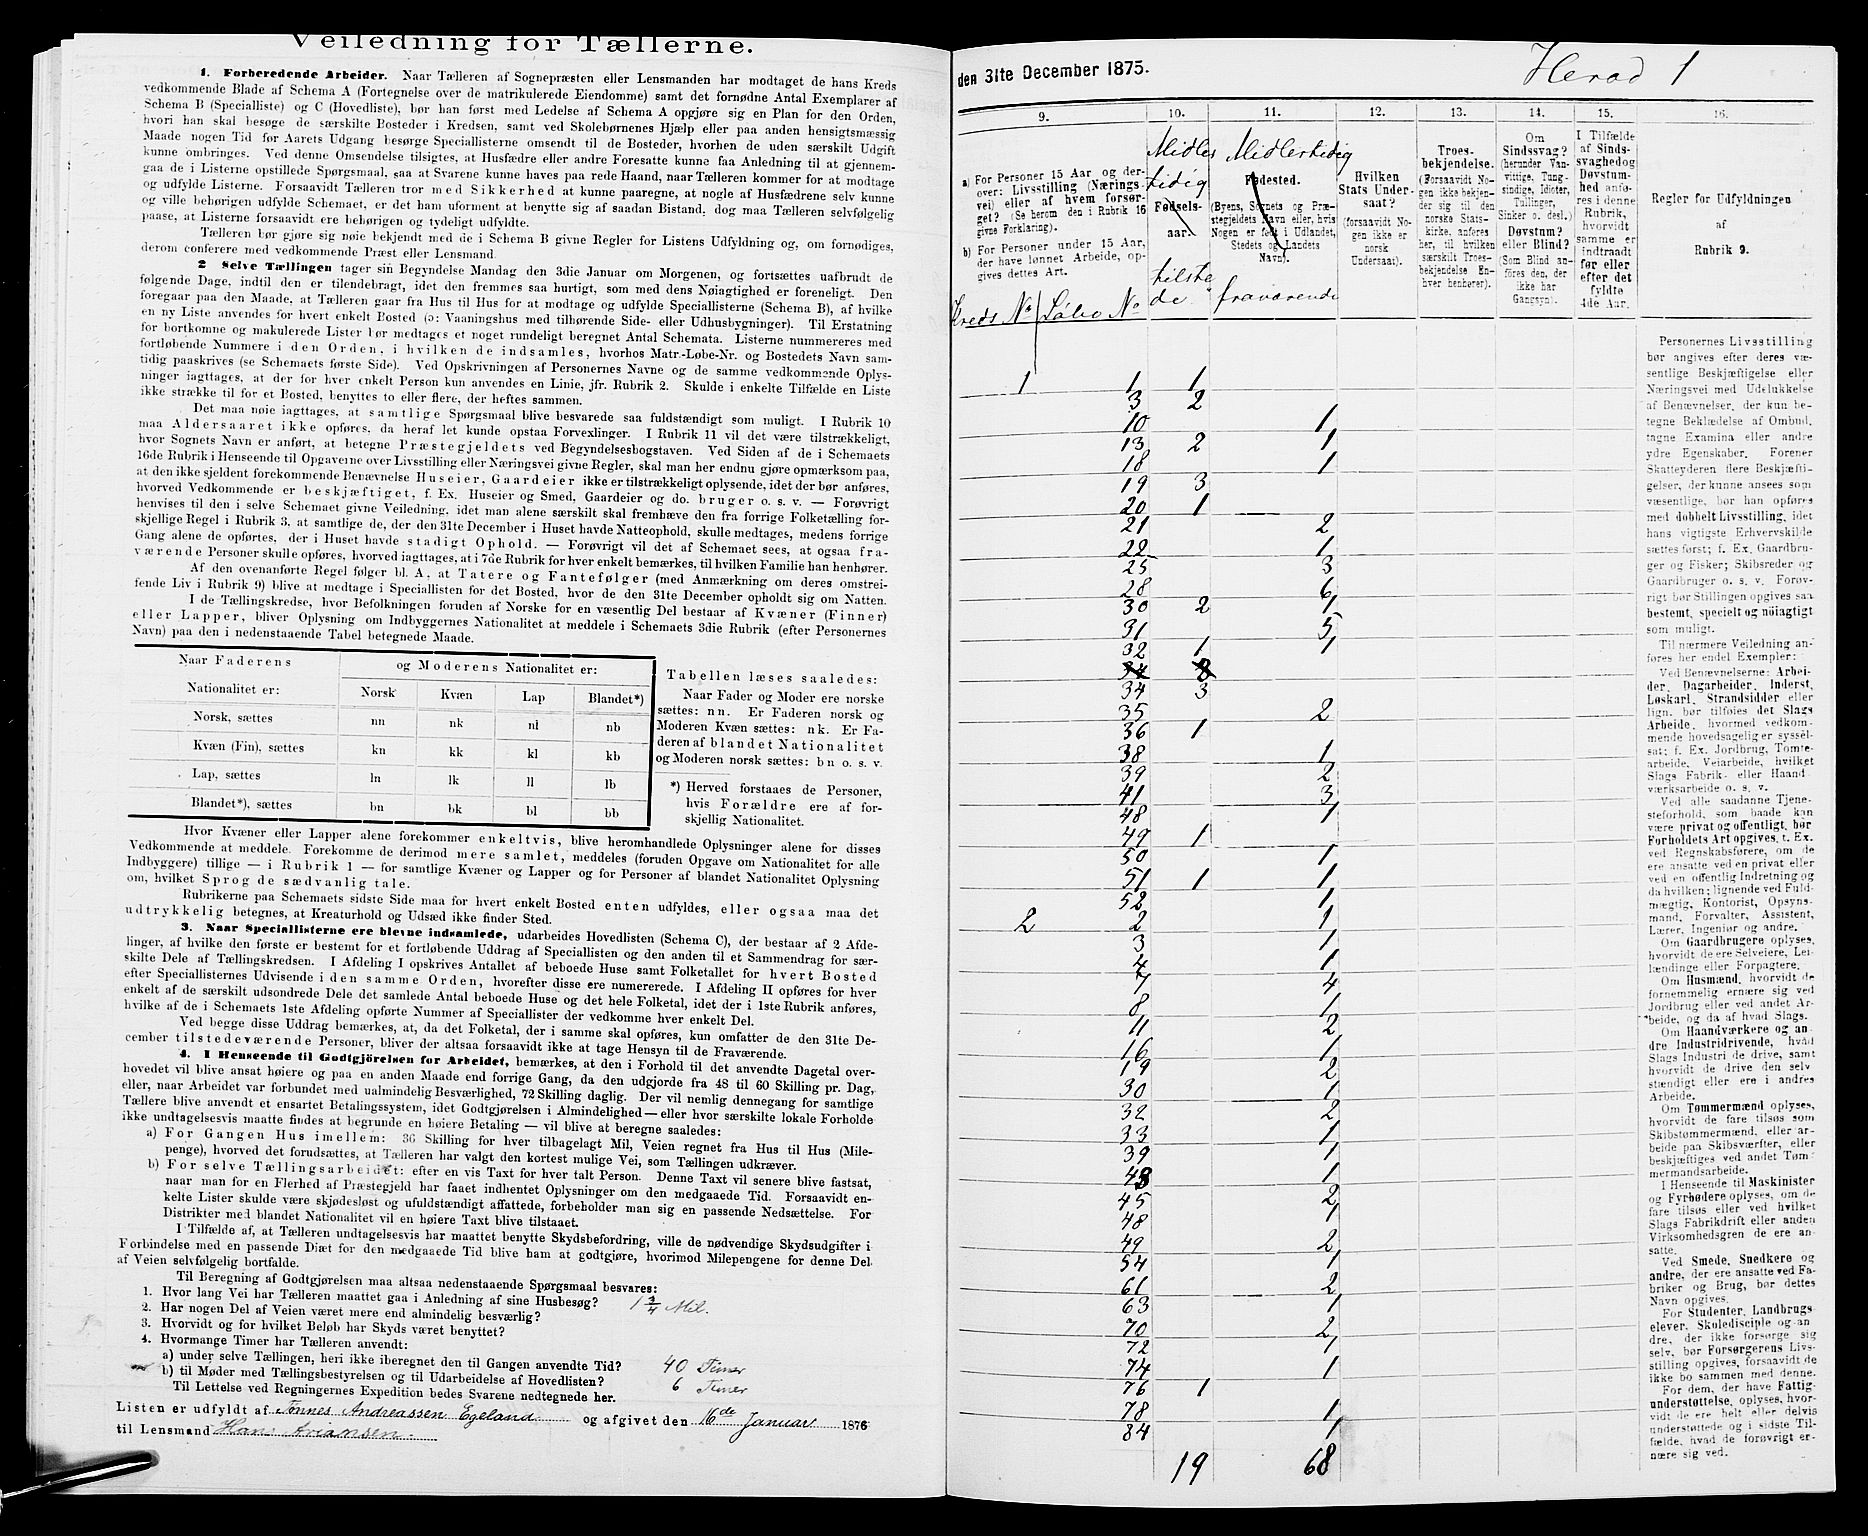 Veiledning for Tællerne.
1. Forberedende Arbeider. Naar Tælleren af Sognepræsten eller Lensmanden har modtaget de hans Kreds
vedkommende Blade af Schema A (Fortegnelse over de matrikulerede Eiendomme) samt det fornødne Antal Exemplarer af
Schema B (Specialliste) og C (Hovedliste), bør han først med Ledelse af Schema A opgjøre sig en Plan for den Orden,
hvori han skal besøge de særskilte Bosteder i Kredsen, samt ved Skolebørnenes Hjælp eller paa anden hensigtsmæssig
Maade nogen Tid før Aarets Udgang besørge Speciallisterne omsendt til de Bosteder, hvorhen de uden særskilt Udgift
kunne ombringes. Ved denne Omsendelse tilsigtes, at Husfædre eller andre Foresatte kunne faa Anledning til at gjennem-
gaa de i Listerne opstillede Spørgsmaal, saa at Svarene kunne haves paa rede Haand, naar Tælleren kommer for at modtage
og udfylde Listerne. Forsaavidt Tælleren tror med Sikkerhed at kunne paaregne, at nogle af Husfædrene selv kunne
og ville behørigen udfylde Schemaet, er det ham uforment at benytte sig af saadan Bistand, dog maa Tælleren selvfølgelig
paase, at Listerne forsaavidt ere behørigen og tydeligt udfyldte.
Tælleren bør gjøre sig nøie bekjendt med de i Schema B givne Regler for Listens Udfyldning og, om fornødiges,
derom conferere med vedkommende Præst eller Lensmand.
2 Selve Tællingen tager sin Begyndelse Mandag den 3die Januar om Morgenen, og fortsættes uafbrudt de
følgende Dage, indtil den er tilendebragt, idet den fremmes saa hurtigt, som med dens Nøiagtighed er foreneligt. Den
foregaar paa den Maade, at Tælleren gaar fra Hus til Hus for at modtage og udfylde Speciallisterne (Schema B), af hvilke
en ny Liste anvendes for hvert enkelt Bosted (ɔ: Vaaningshus med tilhørende Side- eller Udhusbygninger). Til Erstatning
for bortkomne og makulerede Lister bør medtages et noget rundeligt beregnet Antal Schemata. Listerne nummereres med
fortløbende Nummere i den Orden, i hvilken de indsamles, hvorhos Matr.-Løbe-Nr. og Bostedets Navn sam-
tidig paaskrives (se Schemaets første Side). Ved Opskrivningen af Personernes Navne og de samme vedkommende Oplys-
ninger iagttages, at der for hver enkelt Person kun anvendes en Linie, jfr. Rubrik 2. Skulde i enkelte Tilfælde en Liste
ikke strække til for et Bosted, benyttes to eller flere, der heftes sammen.
Det maa nøie iagttages, at samtlige Spørgsmaal blive besvarede saa fuldstændigt som muligt. I Rubrik 10
maa Aldersaaret ikke opføres, da heraf let kunde opstaa Forvexlinger. I Rubrik 11 vil det være tilstrækkeligt,
hvor Sognets Navn er anført, at betegne Præstegjeldets ved Begyndelsesbogstaven. Ved Siden af de i Schemaets
16de Rubrik i Henseende til Opgaverne over Livsstilling eller Næringsvei givne Regler, skal man her endnu gjøre opmærksom paa,
at den ikke sjeldent forekommende Benævnelse Huseier, Gaardeier ikke er tilstrækkeligt oplysende, idet der bør anføres,
hvorved Vedkommende er beskjæftiget, f. Ex. Huseier og Smed, Gaardeier og do. bruger o. s. v. — Forøvrigt
henvises til den i selve Schemaet givne Veiledning, idet man alene særskilt skal fremhæve den fra forrige Folketælling for-
skjellige Regel i Rubrik 3, at samtlige de, der den 31te December i Huset havde Natteophold, skulle medtages, medens forrige
Gang alene de opførtes, der i Huset havde stadigt Ophold. — Forøvrigt vil det af Schemaet sees, at ogsaa fra-
værende Personer skulle opføres, hvorved iagttages, at i 7de Rubrik for hver enkelt bemærkes, til hvilken Familie han henhører.
Af den ovenanførte Regel følger bl. A, at Tatere og Fantefølger (med Anmærkning om deres omstrei-
fende Liv i Rubrik 9) blive at medtage i Speciallisten for det Bosted, hvor de den 31te December opholdt sig om Natten.
I de Tællingskredse, hvor Befolkningen foruden af Norske for en væsentlig Del bestaar af Kvæner (Finner)
eller Lapper, bliver Oplysning om Indbyggernes Nationalitet at meddele i Schemaets 3die Rubrik (efter Personernes
Navn) paa den i nedenstaaende Tabel betegnede Maade.
Naar Faderens og Moderens Nationalitet er:
Nationalitet er: Norsk Kvæn Lap Blandet*)
Norsk, sættes nn nk nl nb
Kvæn (Fin), sættes kn kk kl kb
Lap, sættes ln lk ll lb
Blandet*), sættes bn bk bl bb
Tabellen læses saaledes:
Naar Fader og Moder ere norske
sættes: nn. Er Faderen norsk og
Moderen Kvæn sættes: nk. Er Fa-
deren af blandet Nationalitet
og Moderen norsk sættes: bn o. s. v.
*) Herved forstaaes de Personer,
hvis Forældre ere af for-
skjellig Nationalitet.
Hvor Kvæner eller Lapper alene forekommer enkeltvis, blive heromhandlede Oplysninger alene for disses
Vedkommende at meddele. Forekomme de derimod mere samlet, meddeles (foruden Opgave om Nationalitet for alle
Indbyggere) tillige — i Rubrik 1 — for samtlige Kvæner og Lapper og for Personer af blandet Nationalitet Oplysning
om, hvilket Sprog de sædvanlig tale.
Rubrikerne paa Schemaets sidste Side maa for hvert enkelt Bosted enten udfyldes, eller ogsaa maa det
udtrykkelig betegnes, at Kreaturhold og Udsæd ikke finder Sted.
3. Naar Speciallisterne ere blevne indsamlede, udarbeides Hovedlisten (Schema C), der bestaar af 2 Afde-
linger, af hvilke den første er bestemt for et fortløbende Uddrag af Speciallisten og den anden til et Sammendrag for sær-
skilte Dele af Tællingskredsen. I Afdeling I opskrives Antallet af beboede Huse samt Folketallet for hvert Bosted
efter Speciallisternes Udvisende i den samme Orden, hvorefter disse ere numererede. I Afdeling II opføres for hver
enkelt af de særskilt udsondrede Dele det samlede Antal beboede Huse og det hele Folketal, idet der i 1ste Rubrik anføres,
hvilke af de i Schemaets 1ste Afdeling opførte Nummer af Speciallister der vedkomme hver enkelt Del.
Ved begge disse Uddrag bemærkes, at, da det Folketal, der i samme skal opføres, kun omfatter de den 31te De-
cember tilstedeværende Personer, bliver der altsaa forsaavidt ikke at tage Hensyn til de Fraværende.
4. I Henseende til Godtgjörelsen for Arbeidet, bemærkes, at den i Forhold til det anvendte Dagetal over-
hovedet vil blive ansat høiere og paa en anden Maade end forrige Gang, da den udgjorde fra 48 til 60 Skilling pr. Dag,
eller, naar Arbeidet var forbundet med ualmindelig Besværlighed, 72 Skilling daglig. Der vil nemlig dennegang for samtlige
Tællere blive anvendt et ensartet Betalingssystem, idet Godtgjørelsen i Almindelighed — eller hvor særskilte lokale Forholde
ikke undtagelsesvis maatte findes at begrunde en høiere Betaling — vil blive at beregne saaledes:
a) For Gangen Hus imellem: 36 Skilling for hver tilbagelagt Mil, Veien regnet fra Hus til Hus (Mile-
penge), hvorved det forudsættes, at Tælleren har valgt den kortest mulige Vei, som Tællingen udkræver.
b) For selve Tællingsarbeidet: efter en vis Taxt for hver talt Person. Denne Taxt vil senere blive fastsat,
naar man for en Flerhed af Præstegjeld har faaet indhentet Oplysninger om den medgaaede Tid. Forsaavidt en-
kelte Lister skulde være skjødesløst og ufuldstændigt affattede, forbeholder man sig en passende Nedsættelse. For
Distrikter med blandet Nationalitet vil en høiere Taxt blive tilstaaet.
I Tilfælde af, at Tælleren undtagelsesvis har maattet benytte Skydsbefordring, ville de nødvendige Skydsudgifter i
Forbindelse med en passende Diæt for den medgaaede Tid blive ham at godtgjøre, hvorimod Milepengene for denne Del
af Veien selvfølgelig bortfalde.
Til Beregning af Godtgjørelsen maa altsaa nedenstaaende Spørgsmaal besvares:
1. Hvor lang Vei har Tælleren maattet gaa i Anledning af sine Husbesøg? 1 3/4 Mil.
2. Har nogen Del af Veien været mere end almindelig besværlig?
3. Hvorvidt og for hvilket Beløb har Skyds været benyttet?
4. Hvormange Timer har Tælleren anvendt:
a) under selve Tællingen, heri ikke iberegnet den til Gangen anvendte Tid? 40 Timer
b) til Møder med Tællingsbestyrelsen og til Udarbeidelse af Hovedlisten? 6 Timer
Til Lettelse ved Regningernes Expedition bedes Svarene nedtegnede her.
Listen er udfyldt af Tönnes Andreassen Egeland og afgivet den 16de Januar 1876
til Lensmand Hans Ariansen.
den 31te December 1875.
Herad 1
9. 10. 11. 12. 13. 14. 15. 16.
a) For Personer 15 Aar og der-
over: Livsstilling (Nærings-
vei) eller af hvem forsør-
get? (Se herom den i Rubrik 16
givne Forklaring).
b) For Personer under 15 Aar,
der have lønnet Arbeide, op-
gives dettes Art.
Kreds No Løbe No
Midler
tidig
Fødsels-
aar.
tilste
de
Midlertidig
Fødested.
(Byens, Sognets og Præ-
stegjeldets Navn eller, hvis
Nogen er født i Udlandet,
Stedets og Landets
Navn).
fraværende
Hvilken
Stats Under-
saat?
(forsaavidt No-
gen ikke er
norsk
Undersaat).
Troes-
bekjendelse.
(Forsaavidt No-
gen ikke bekjen-
der sig til den
norske Stats-
kirke, anføres
her, til hvilken
særskilt Troes-
bekjendelse En-
hver henhører).
Om
Sindssvag?
(herunder Van-
vittige, Tung-
sindige, Idioter,
Tullinger,
Sinker o. desl.).
Døvstum?
eller Blind?
(Som Blind an-
føres den, der
ikke har
Gangsyn).
I Tilfælde
af Sinds-
svaghed og
Døvstum-
hed anfø-
res i denne
Rubrik,
hvorvidt
samme er
indtraadt
før eller
efter det
fyldte
4de Aar.
Regler for Udfyldningen
af
Rubrik 9.
1 1 1
3 2
10 1
13 2 1
18 1
19 3
20 1
21 2
22 1
25 3
28 6
30 2 1
31 5
32 1 1
34 3
35 2
36 1
38 1
39 2
41 3
48 1
49 1
50 1
51 1 1
52 1
2 2 1
3 1
4 1
7 4
8 1
11 2
16 1
19 2
30 1
32 2
33 1
39 1
43 1
45 2
48 1
49 2
54 1
61 2
63 1
70 2
72 1
74 1
76 1
78 1
84 1
19 68
Personernes Livsstilling
bør angives efter deres væ-
sentlige Beskjæftigelse eller
Næringsvei med Udelukkelse
af Benævnelser, der kun be-
tegne Beklædelse af Ombud,
tagne Examina eller andre
ydre Egenskaber. Forener
Skatteyderen flere Beskjæfti-
gelser, der kunne ansees som
væsentlige, bør han opføres
med dobbelt Livsstilling, idet
hans vigtigste Erhvervskilde
sættes først; f. Ex. Gaardbru-
ger og Fisker; Skibsreder og
Gaardbruger o. s. v. Forøv-
rigt bør Stillingen opgives saa
bestemt, specielt og nöiagtigt
som muligt.
Til nærmere Veiledning an-
føres her endel Exempler:
Ved Benævnelserne: Arbei-
der, Dagarbeider, Inderst,
Løskarl, Strandsidder eller
lign. bør tilføies det Slags
Arbeide, hvormed vedkom-
mende hovedsagelig er syssel-
sat; f. Ex. Jordbrug, Tomte-
arbeide, Veiarbeide, hvilket
Slags Fabrik- eller Haand-
værksarbeide o. s. v.
Ved alle saadanne Tjene-
steforhold, som baade kan
være privat og offentligt, bør
Forholdets Art opgives, t. Ex.
ved Regnskabsførere, om de
ere ansatte ved en privat eller
ved en offentlig Indretning og
da hvilken; lignende ved Fuld-
mægtig, Kontorist, Opsyns-
mand, Forvalter, Assistent,
Lærer, Ingeniør og andre.
Om Gaardbrugere oplyses,
hvorvidt de ere Selveiere, Lei-
lændinge eller Forpagtere.
Om Husmænd, hvorvidt de
fornemmelig ernære sig ved
Jordbrug eller ved andet Ar-
beide, og da af hvad Slags.
Om Haandværkere og an-
dre Industridrivende, hvad
Slags Industri de drive, samt
hvorvidt de drive den selv-
stændigt eller ere i andres
Arbeide.
Om Tømmermænd oplyses,
hvorvidt de fare tilsøs som
Skibstømmermænd, eller ar-
beide paa Skibsværfter, eller
beskjæftiges ved andet Tøm-
mermandsarbeide.
I Henseende til Maskinister
og Fyrbødere oplyses, om de
fare tilsøs eller ved hvilket
Slags Fabrikdrift eller anden
Virksomhedsgren de ere an-
satte.
Ved Smede, Snedkere og
andre, der ere ansatte ved Fa-
briker og Brug, bør dettes
Navn opgives.
For Studenter, Landbrugs-
elever, Skoledisciple og an-
dre, der ikke forsørge sig
selv, bør Forsørgerens Livs-
stilling opgives, forsaavidt de
ikke bo sammen med denne.
For dem, der have Fattig-
understøttelse, oplyses, hvor-
vidt de ere helt eller delvis
understøttede og i sidste Til-
fælde, hvad de forøvrigt er-
nære sig ved.